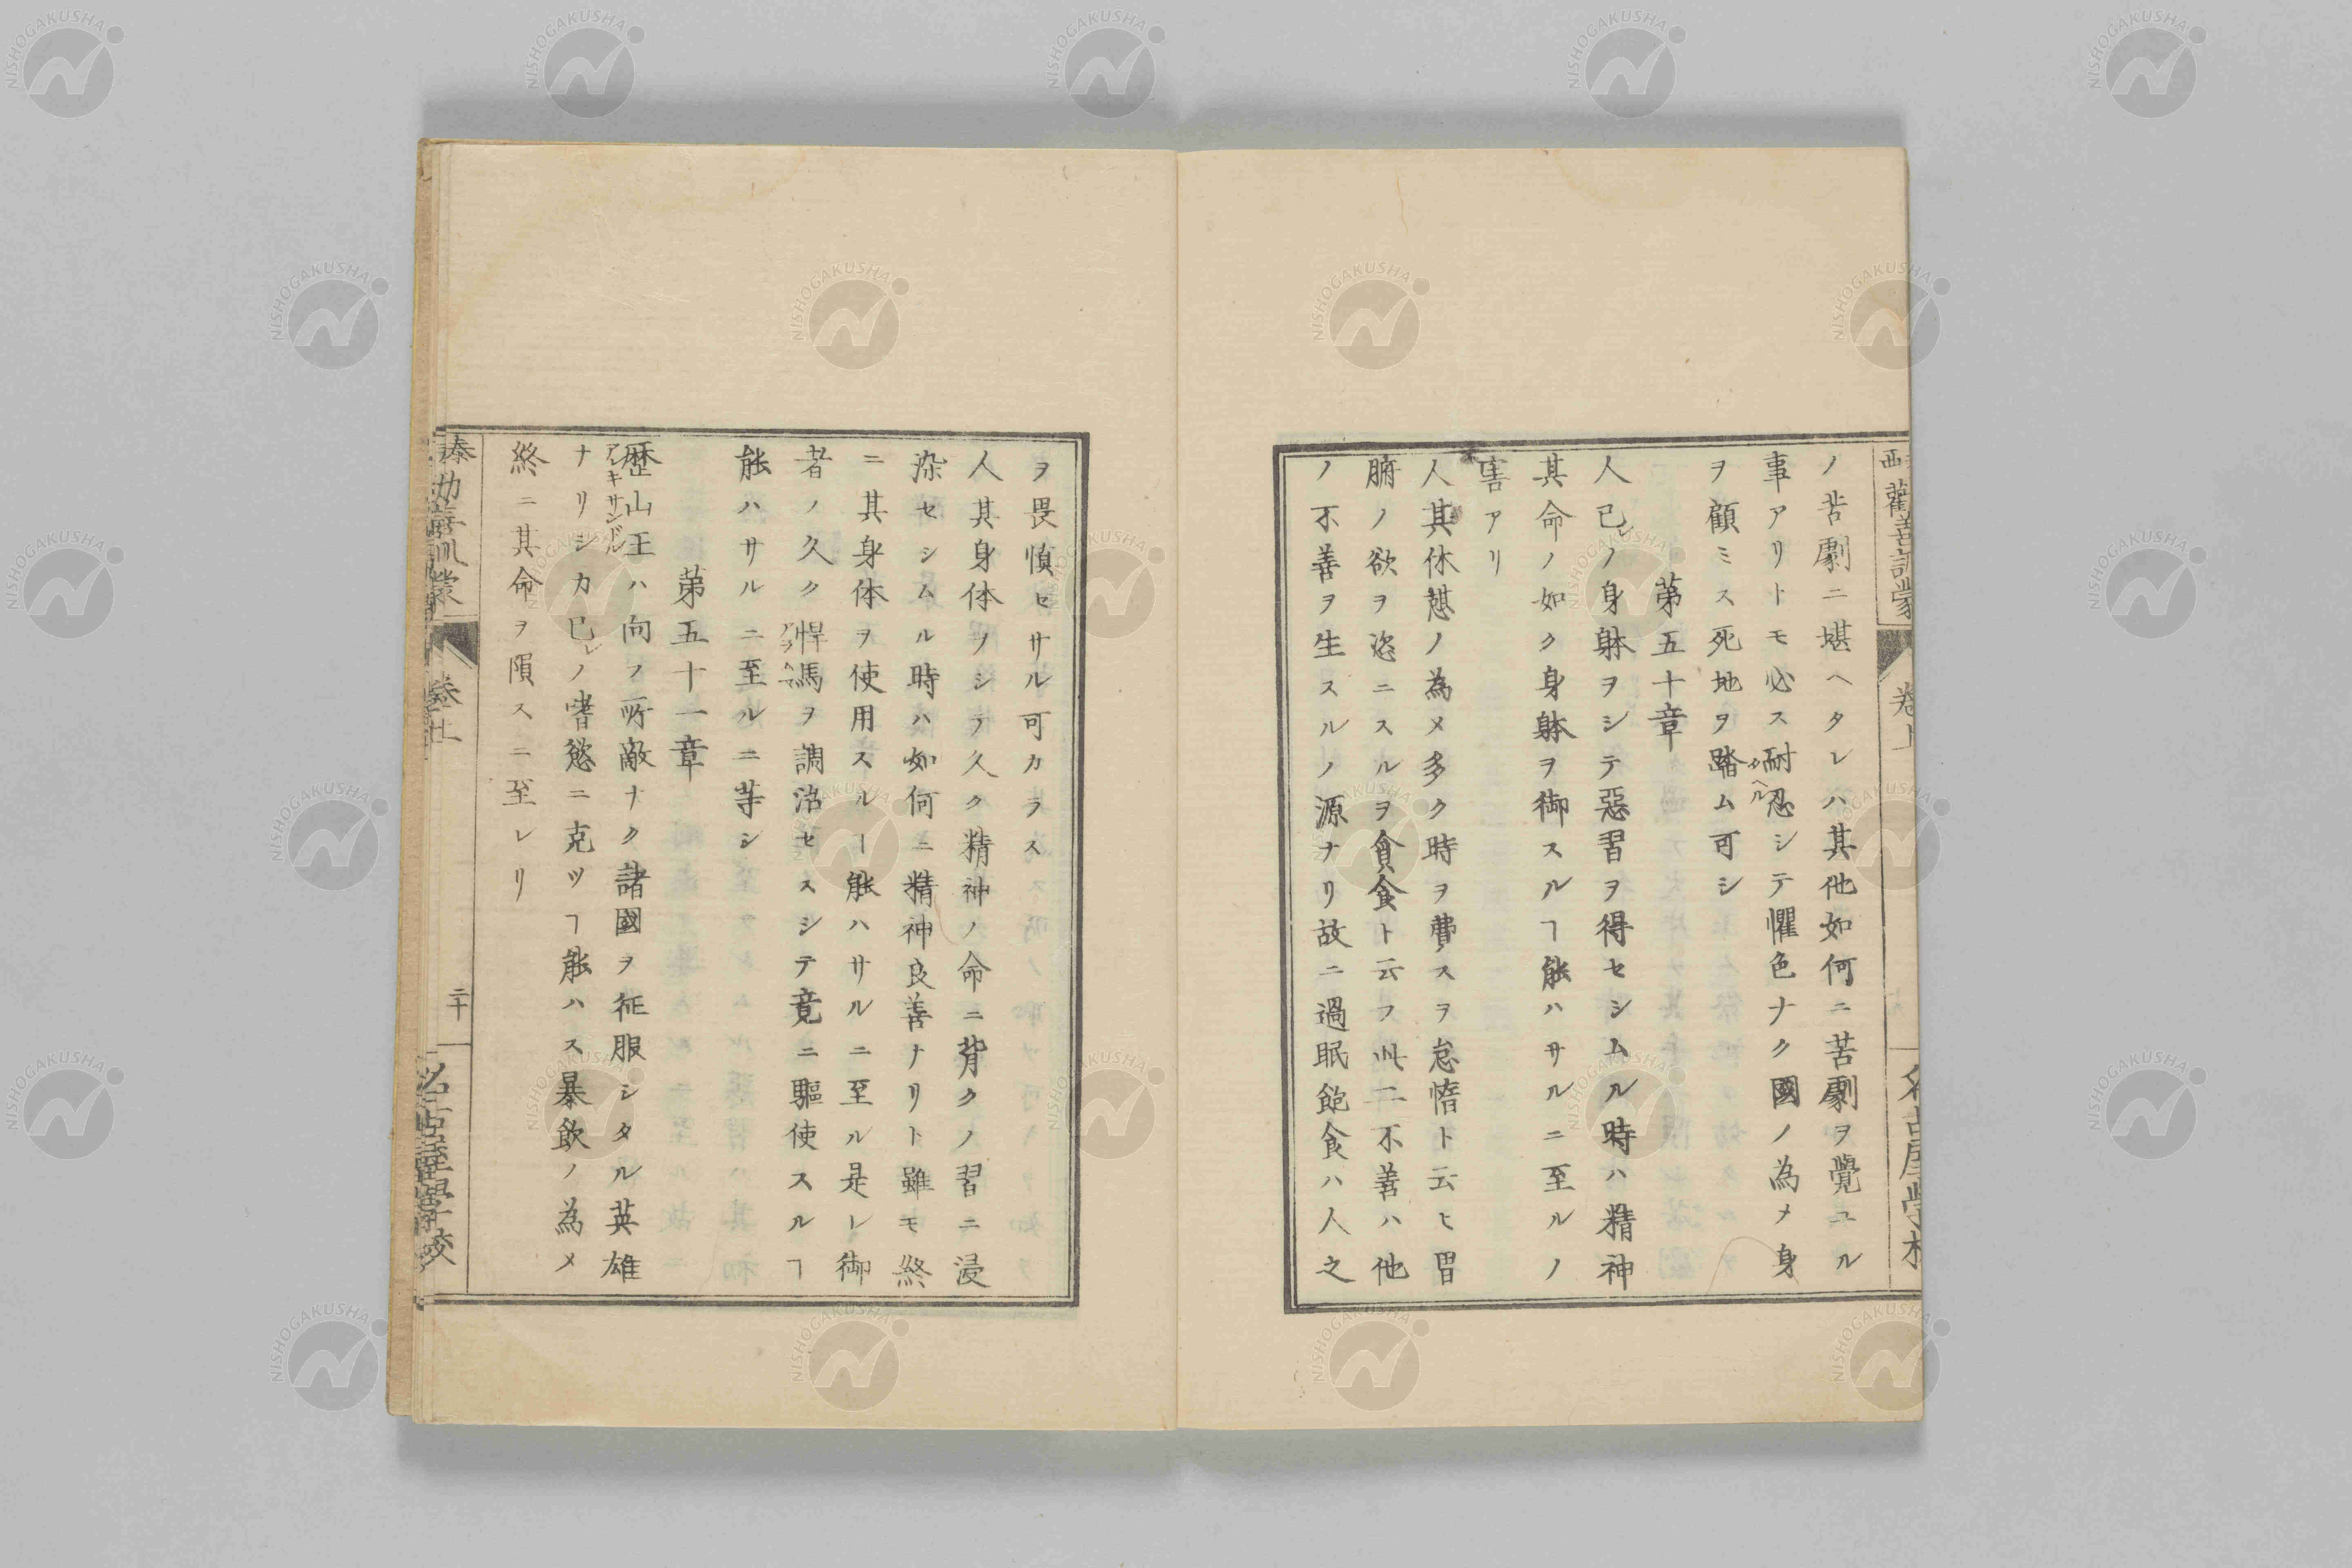 西勸善訓蒙 卷上 名古屋學校
ノ苦劇ニ堪ヘタレハ其他如何ニ苦劇ヲ覺ユル
事アリトモ必ス耐忍シテ懼色ナク國ノ為メ身
ヲ顧ミス死地ヲ踏ム可シ
第五十章
人己レノ身躰ヲシテ惡習ヲ得セシムル時ハ精神
其命ノ如ク身躰ヲ御スルヿ能ハサルニ至ルノ
害アリ
人其休憇ノ為メ多ク時ヲ費スヲ怠惰ト云ヒ胃
腑ノ欲ヲ恣ニスルヲ貪食ト云フ此二不善ハ他
ノ不善ヲ生スルノ源ナリ故ニ過眠飽食ハ人之
ヲ畏慎セサル可カラス
人其身体ノシテ久ク精神ノ命ニ背クノ習ニ浸
染セシムル時ハ如何ニ精神良善ナリト雖モ終
ニ其身体ヲ使用スルヿ能ハサルニ至ル是レ御
者ノ久ク悍馬ヲ調治セスシテ竟ニ驅使スルヿ
能ハサルニ至ルニ等シ
第五十一章
歴山王ハ向フ所敵ナク諸國ヲ征服シタル英雄
アレキサンドル
ナリシカ已レノ嗜慾ニ克ツヿ能ハス暴飲ノ為メ
終ニ其命ヲ隕スニ至レリ
泰勸善訓蒙 卷上 二十 名古屋學校
NISHOGAKUSHA